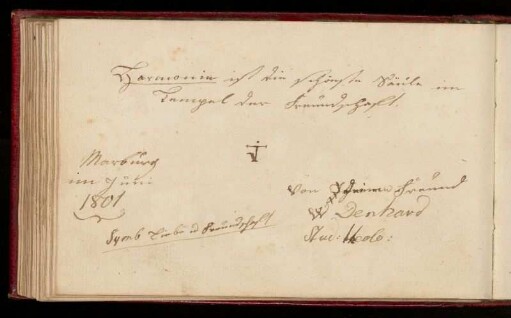 Harmonie ist die schönste Säule im
Tempel der Freundschaft.
Marburg
im Juni
1801
Symb Liebe u Freundschaft
von Deinem Freund
Denhard
Stud: Theol: